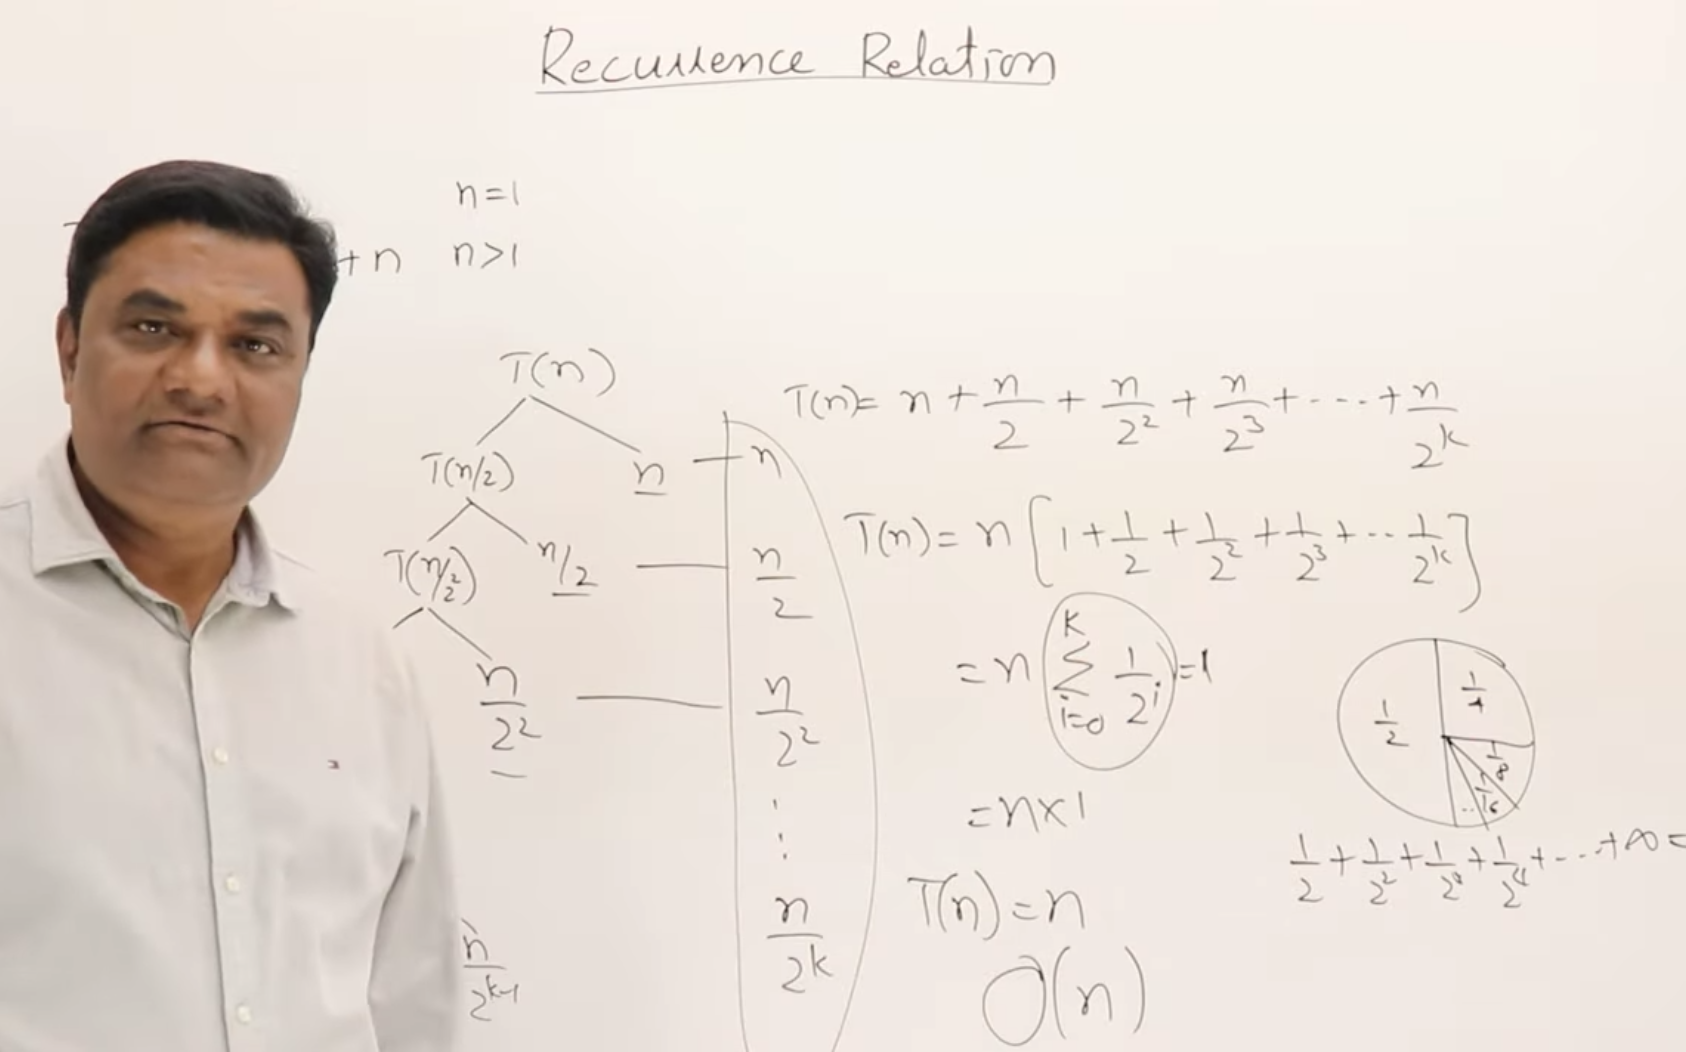 Recurrence Relation
n=1
+n n>1
T(n)
T(n/2) n — n
T(n/2²) n/2 — n/2
n/2² — n/2²
⋮
n/2^k
n/2^(k-1)
T(n)= n + n/2 + n/2² + n/2³ + ---- + n/2^k
T(n)= n [1 + 1/2 + 1/2² + 1/2³ + -- 1/2^k]
= n Σ_(i=0)^k 1/2^i = 1
= n×1
T(n) = n
O(n)
1/2 1/4 1/8 1/16 ...
1/2 + 1/2² + + 1/2⁴ + --- + ∞ =